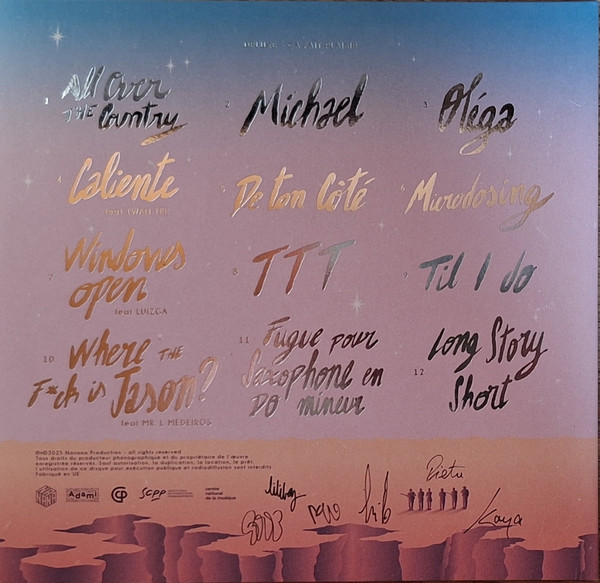 1 All Over
THE Country
2 Michael
3 Oléga
4 Caliente
feat
5 De ton Côté
6 Microdosing
7 Windows
open
feat LUIZGA
8 TTT
9 Til I do
10 Where THE
F*ck is Jason?
feat MR. L MEDEIROS
11 Fugue pour
Saxophone en
DO mineur
12 Long Story
Short
Production - all rights reserved
Tous droits du producteur phonographique et du propriétaire de l'œuvre
enregistrée réservés. Sauf autorisation, la duplication, la location, le prêt,
l'utilisation de ce disque pour exécution publique et radiodiffusion sont interdits
Fabriqué en UE
Adami
scpp
centre
national
de la musique
Pietu
Kaya